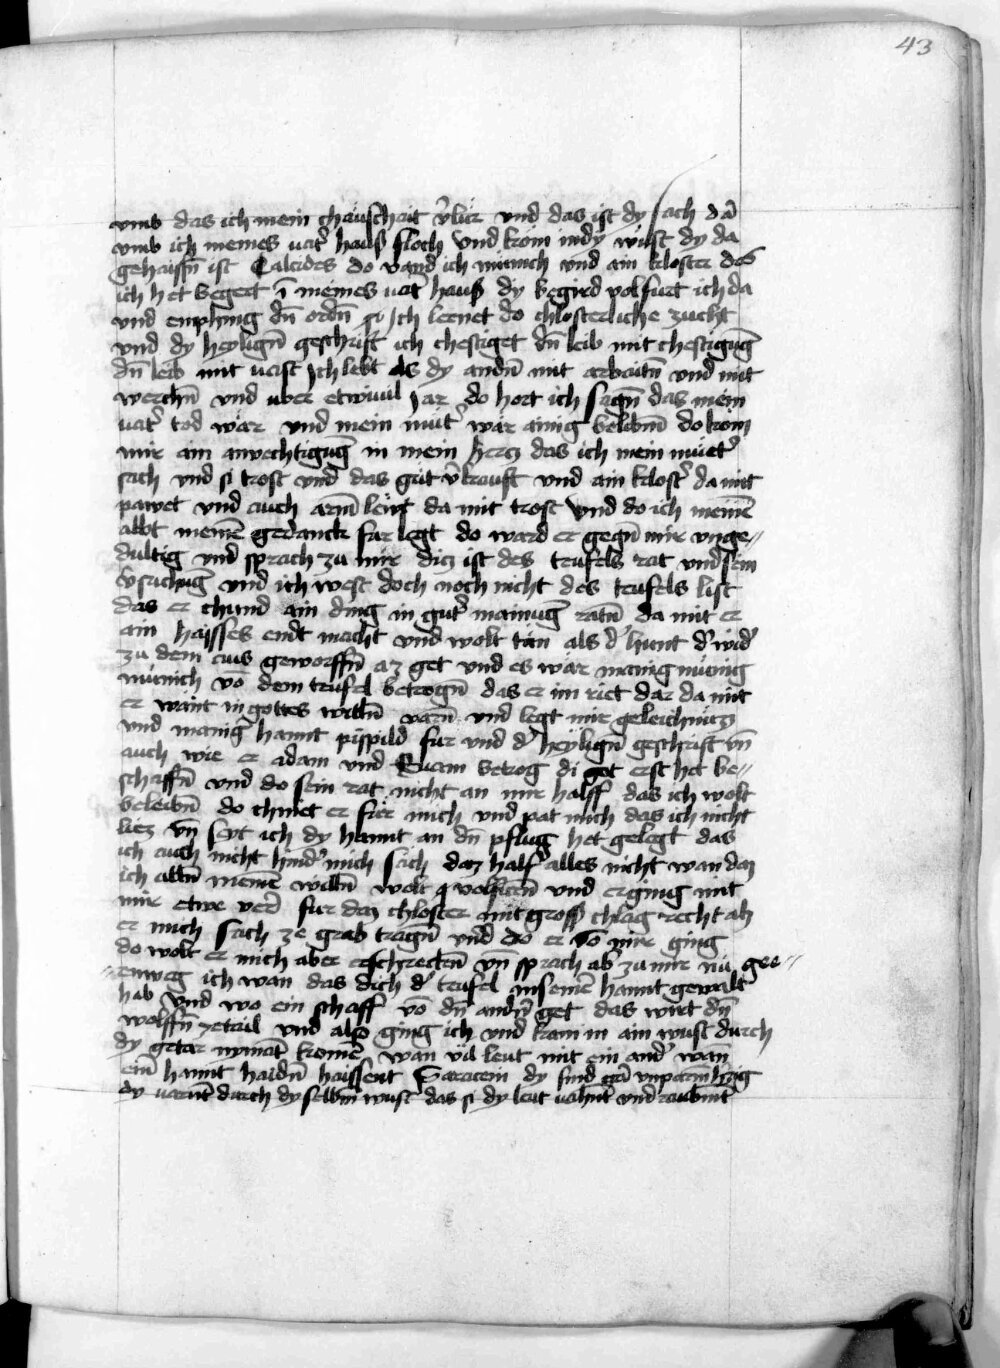 43
vmb das ich mein chäuschait v̄lür vnd das ist dy sach dā
vmb ich meines vat̓ haus floch vnd kom in dy wüst dy da
gehaissn̄ ist Calcides do vand ich münich vnd ain kloster des
ich het begert ī meines vat̓ haus dy begird volfurt ich da
vnd emphing dn̄ ordn̄ Ich lernet do chlosterliche zucht
vnd dy heylign̄ geschrift ich chestiget dn̄ leib mit chestigūg
dn̄ leib mit vast Ich lebt als dy andn̄ mit arbaitn̄ vnd mit
werchn̄ vnd vber etwiuil Jar do hort ich sagn̄ das mein
vat̓ tod wär vnd mein mut̓ wär ainig belibn̄ do kom
mir ain anvechtigūg in mein hercz das ich mein müet̓
säch vnd si trost vnd das güt v̄kauft vnd ain klost̓ da mit
pawet vnd auch arm̄ leüt da mit trost vnd do ich meinē
abbt meinē gedanck für legt do ward er gegn̄ mir vnge-
dultig vnd sprach zu mir dicz ist des teufels rat vnd sein
v̄suchūg vnd ich west doch noch nicht des teufels list
das er chund ain ding in gut̓ mainūg ratn̄ da mit er
ain haisses endt macht vnd wolt tün als d̓ hunt d̓ wid̓
zu dem aus geworffn̄ az get vnd es wär manig
münich vō dem teufel betrogn̄ das er im riet dar da mit
er wänt in gottes willn̄ varn̄ vnd legt mir geleichnüzz
vnd manig hannt peyspild für vnd d̓ heylign̄ geschrift vn̄
auch wie er adam vnd Euam betrog di got erst het be-
schaffn̄ vnd do sein rat nicht an mir halff das ich wolt
beleibn̄ do chniet er für mich vnd pat mich das ich nicht
liez vn̄ seyt ich dy hannt an dn̄ pflug het gelegt das
ich auch nicht hind̓ mich säch daz half alles nicht wan daz
ich alln̄ meinē willn̄ wolt volfüern̄ vnd er ging mit
mir etwe verr für daz chloster mit gross chlag recht als
er mich säch ze grab tragn̄ vnd do er vō mir ging
do wolt er mich aber erschreckn̄ vn̄ sprach ab̓ zu mir nü gee
enweg ich wän das dich d̓ teufel in seinē hannt gewalt
hab vnd wo ein schaff vō dn̄ andn̄ get das wirt dn̄
wolffn̄ zetail vnd also ging ich vnd kam in ain wüst durch
dy getar nymāt kömē wan vil leut mit ein and̓ wan̄
ein̄ hannt haidn̄ haissent Saracein dy sind gar vnparmh̓zig
dy varnt durch dy selbn̄ wüst das si dy leut vahnt vnd raubnt